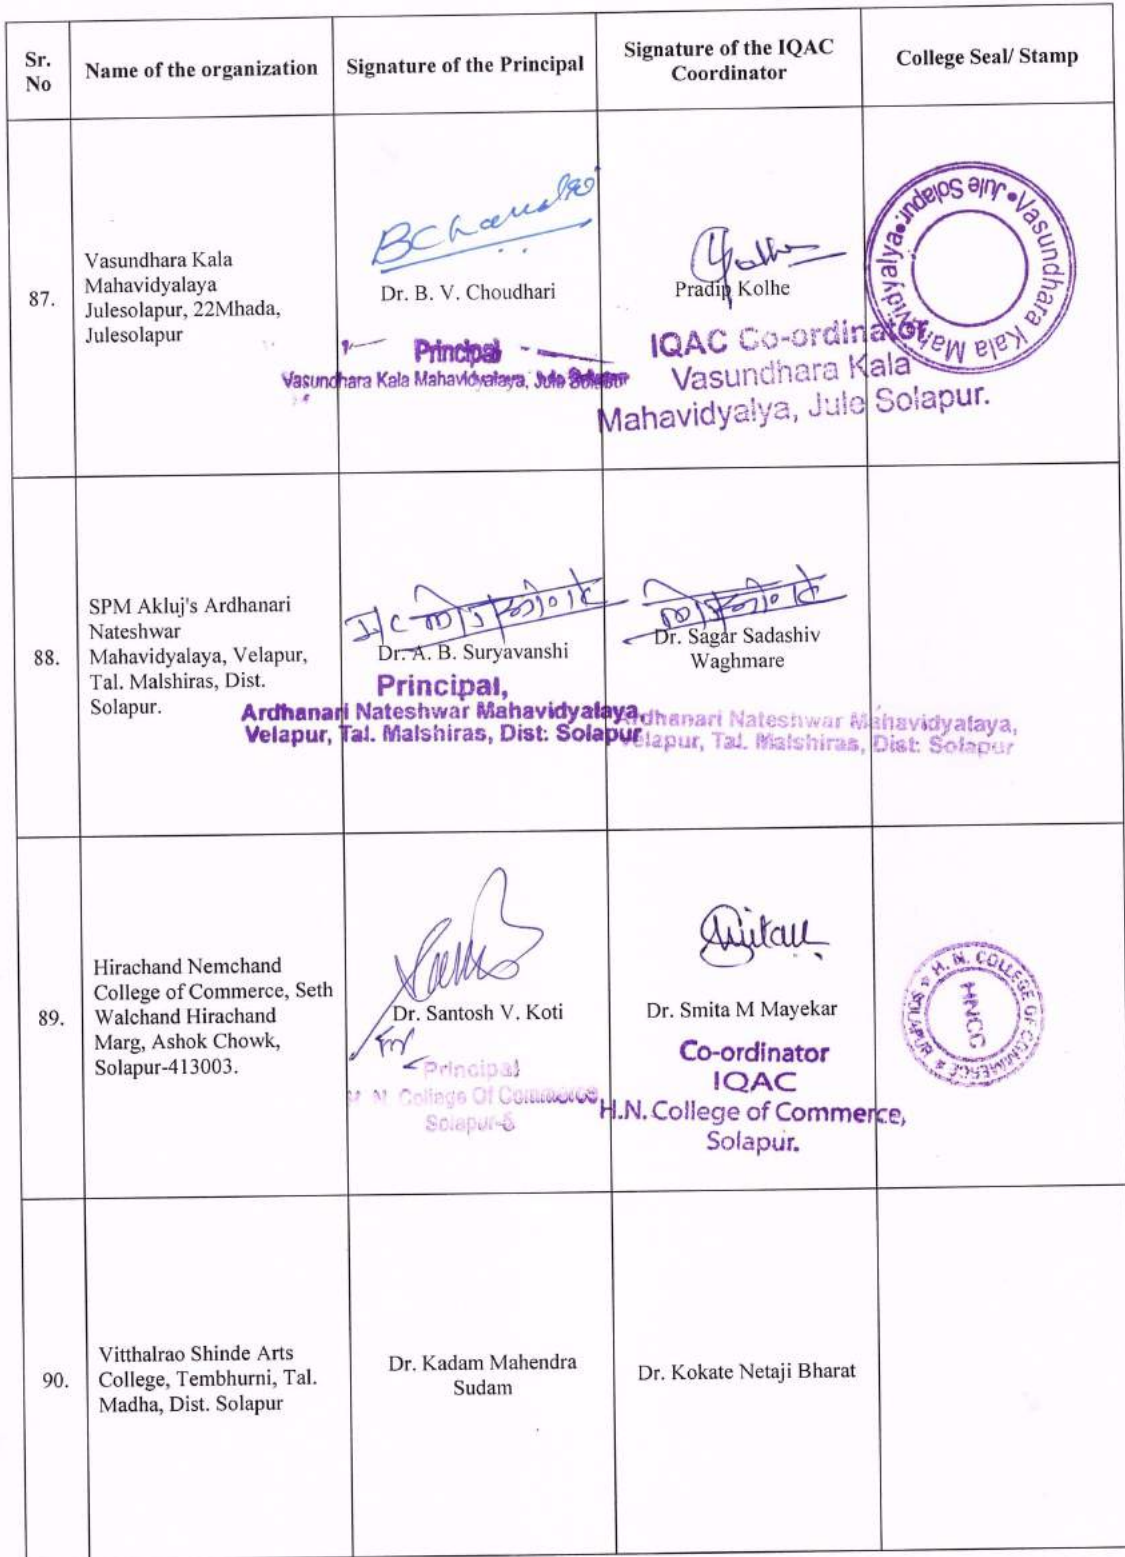 Sr.
No
Name of the organization
Signature of the Principal
Signature of the IQAC
Coordinator
College Seal/ Stamp
87.
Vasundhara Kala
Mahavidyalaya
Julesolapur, 22Mhada,
Julesolapur
Dr. B. V. Choudhari
Principal
Vasundhara Kala Mahavidyalaya, Jule Solapur
Pradip Kolhe
IQAC Co-ordinator
Vasundhara Kala
Mahavidyalya, Jule Solapur.
Vasundhara Kala Mahavidyalya • Jule Solapur •
88.
SPM Akluj's Ardhanari
Nateshwar
Mahavidyalaya, Velapur,
Tal. Malshiras, Dist.
Solapur.
Dr. A. B. Suryavanshi
Principal,
Ardhanari Nateshwar Mahavidyalaya,
Velapur, Tal. Malshiras, Dist: Solapur
Dr. Sagar Sadashiv
Waghmare
Ardhanari Nateshwar Mahavidyalaya,
Velapur, Tal. Malshiras, Dist: Solapur
89.
Hirachand Nemchand
College of Commerce, Seth
Walchand Hirachand
Marg, Ashok Chowk,
Solapur-413003.
Dr. Santosh V. Koti
For
Principal
H. N. College Of Commerce
Solapur-5
Dr. Smita M Mayekar
Co-ordinator
IQAC
H.N. College of Commerce,
Solapur.
H. N. COLLEGE OF COMMERCE * SOLAPUR *
HNCC
90.
Vitthalrao Shinde Arts
College, Tembhurni, Tal.
Madha, Dist. Solapur
Dr. Kadam Mahendra
Sudam
Dr. Kokate Netaji Bharat